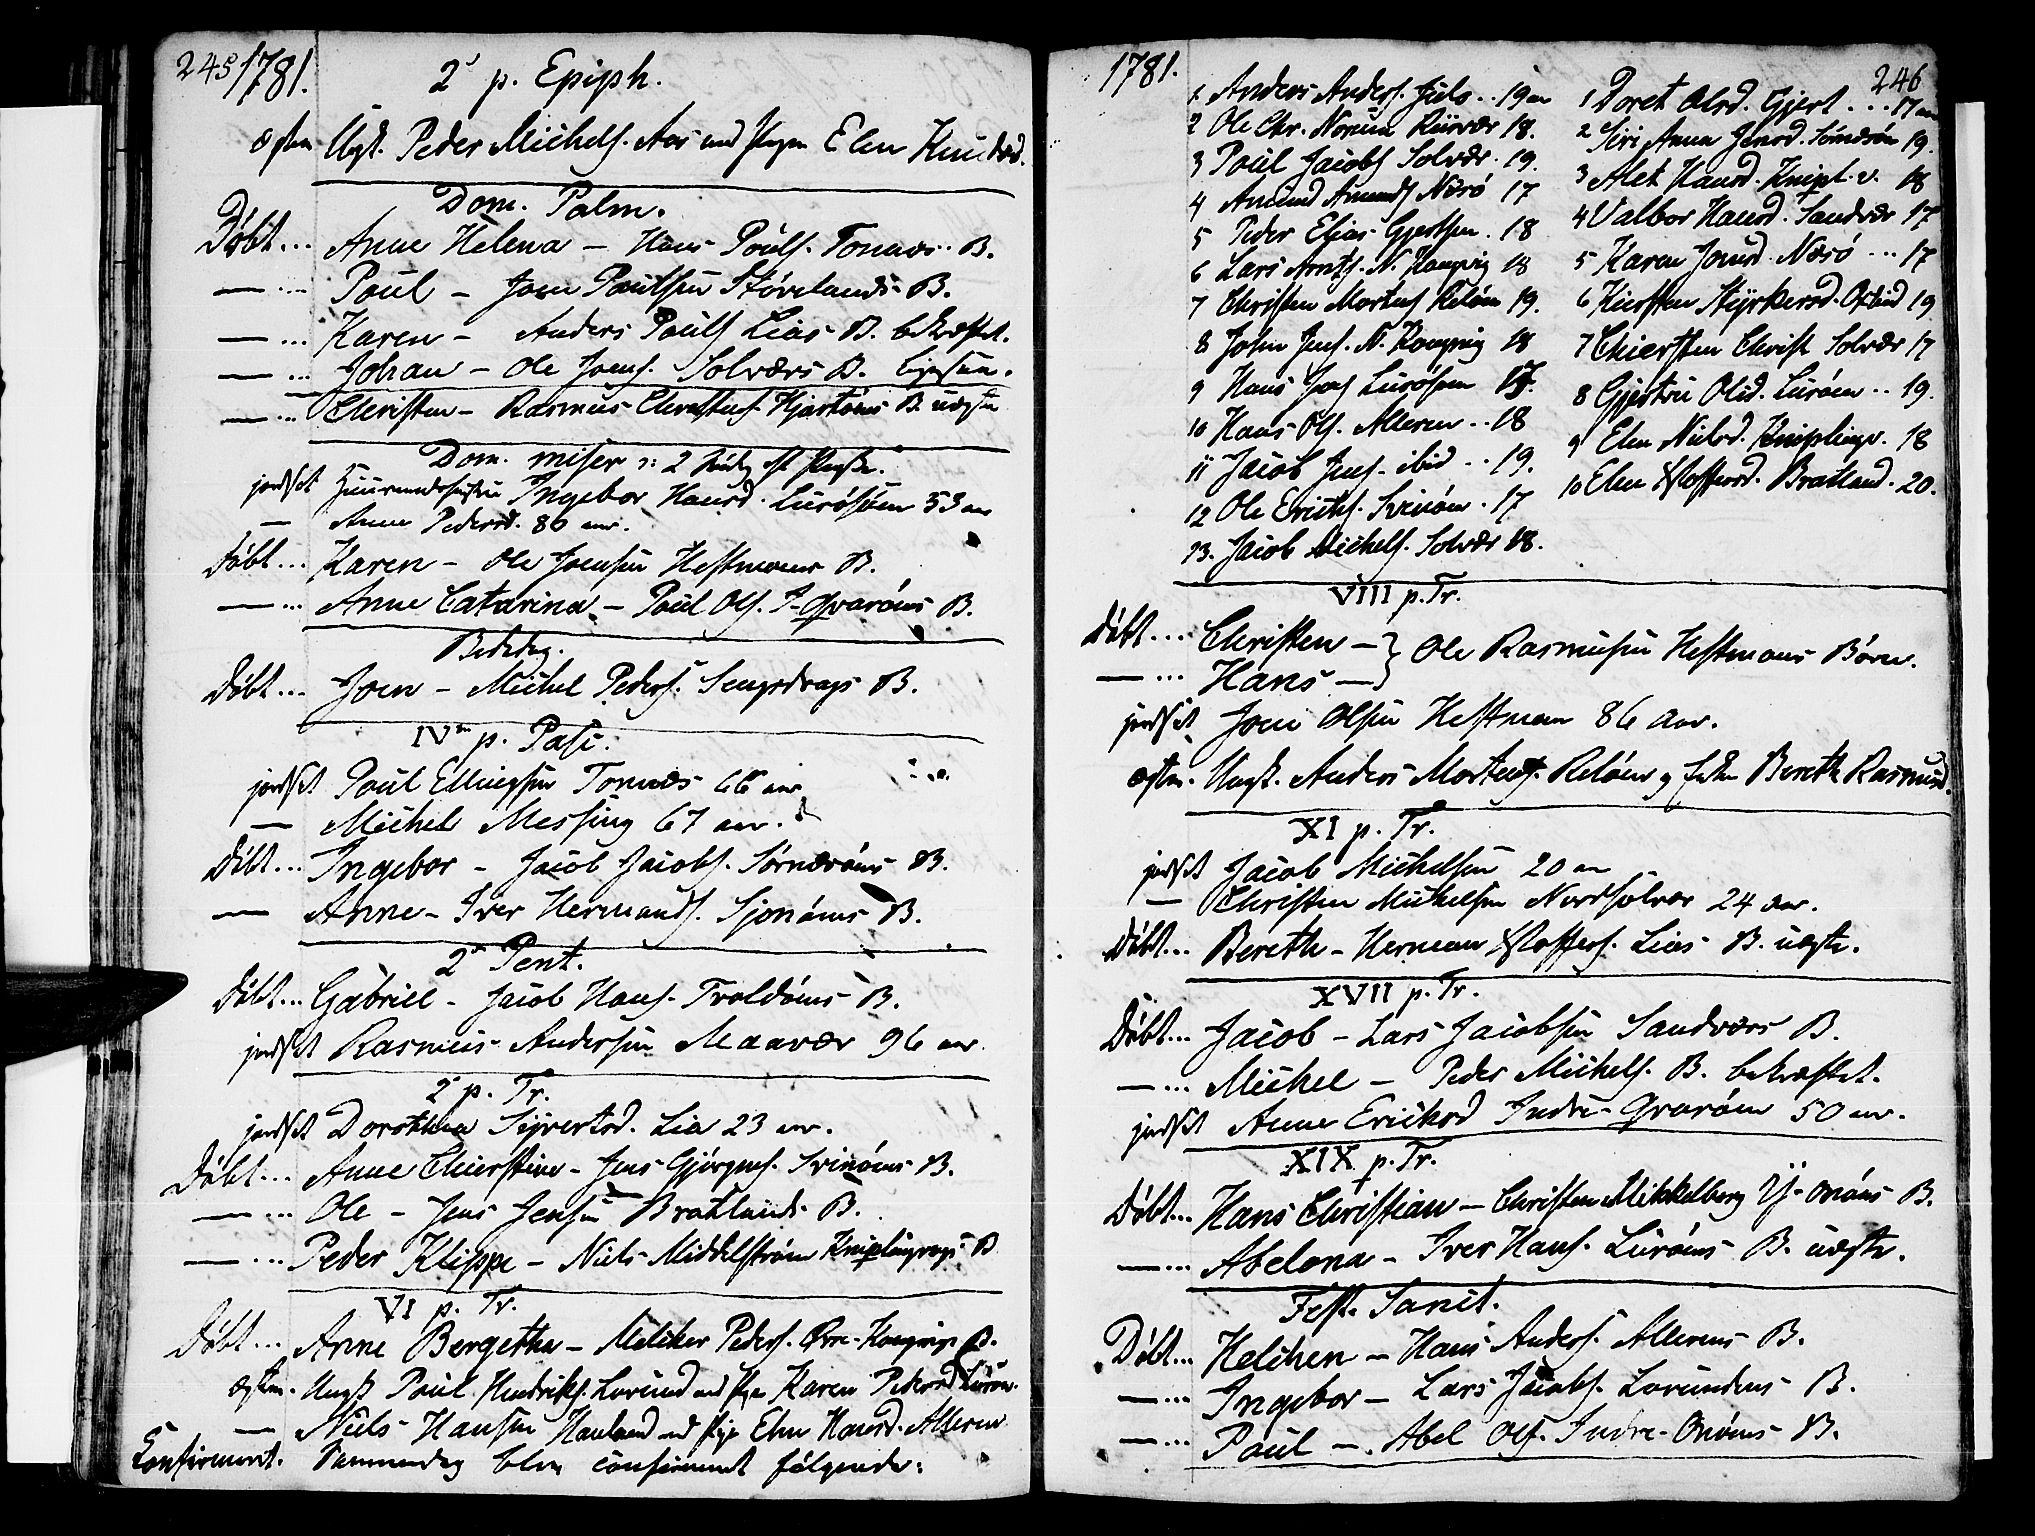 245 1781.
2 p. Epiph.
Ungk. Peder Michels. Aas med Pigen Elen Knudsd.
Dom. Palm.
Døbt... Anne Helena – Hans Poüls. Tonnes B.
— ... Poül – Joen Poülsen Støvelands B.
— ... Karen – Anders Poüls Lias B. bekræftet.
— ... Johan – Ole Joens. Solværs B. ligesaa.
— ... Christen – Rasmus Christens. Hjartøens B. uægte
Dom. miser : 2 Sønd. eft. Paaske.
jordsat Ingebor Hansd. Lurøsøen 53 aar
— Anne Pedersd. 80 aar.
Døbt... Karen – Ole Joensen Hestmons B.
— ... Anne Catarina – Poül Ols. I-Qvarøens B.
Bededag.
Døbt... Joen – Michel Peders. Sengsdrags B.
IV p. Pasc.
jordsat Poül Ellingsen Tonnes 66 aar
— Michel Messing 67 aar.
Døbt... Ingebor – Jacob Jacobs. Sørnesøens B.
— Anne – Iver Hermands. Sjonøens B.
2 Pent.
Døbt... Gabriel – Jacob Hans. Traldøens B.
jordsat Rasmus Andersen Maavær 96 aar.
2 p. Tr.
jordsat Dorothea Sivertsd. Lia 23 aar.
Døbt... Anne Chierstine – Jens Gjørgens. Svinøens B.
— ... Ole – Jens Jensen Bratlands B.
— ... Peder Klippe – Niels Middelstrøm Kniplingvogs B
VI p. Tr.
Døbt... Anne Bergethe – Melcher Peders. Øvre-Kongsvigs B.
Ungk Poül Hendriks. Lovund med Pigen Karen Pedersd Lurøen.
— Niels Hansen Hauland med Pige Elen Hansd. Alleren
Confirmerit. Sammendag blev confirmerit følgende:
1781.
246
1 Anders Anders. Juls .. 19 aar
2 Ole Chr. Norum Rüsvær 18.
3 Poül Jacobs Solvær. 19.
4 Amund Amunds Næsø 17
5 Peder Elias Gjertsen. 18
6 Lars Arnts. N. Kongsvig 18
7 Christen Mortens Reløen 19.
8 John Jens. N. Kongsvig 18
9 Hans Jens Lurøsøen 17.
10 Hans Ols. Alleren .. 18
11 Jacob Jens. ibid .. 19.
12 Ole Erichs. Svinøen . 17
13. Jacob Michels. Solvær 18.
1 Doret Olsd. Gjert ... 17 aar
2 Siri Anna Jensd. Sørnesøen 19.
3 Alet Hansd. Knipl. v. 18
4 Valbor Hansd. Sandvær 17
5 Karen Jonsd. Næsø ... 17
6 Kiersten Styrkersd. 19
7 Chiersten Christ Solvær 17
8 Gjertru Olsd. Lurøen .. 19.
9 Elen Nielsd. Kniplingv. 18
10 Elen Kloffersd. Bratland. 20.
VIII p. Tr.
Døbt.... Christen – } Ole Rasmusen Hestmons Børn.
— ... Hans —
jordsat Joen Olsen Hestmon 86 Aar.
Ungk. Anders Mortens. Reløen og Enken Bereth Rasmusd.
XI p. Tr.
jordsat Jacob Michelsen 20 aar
— Christen Michelsen Nordsolvær 24 aar.
Døbt... Bereth – Herman Kloffers. Lias B. uægte.
XVII p. Tr.
Døbt... Jacob – Lars Jacobsen Sandværs B.
— ... Michel – Peder Michels. B. bekræftet.
jordsat Anne Erichsd Indre-Qvarøen 50 aar.
XIX p. Tr.
Døbt... Hans Christian – Christen Mikkelborg Y-Onøens B.
— ... Abelona – Iver Hans. Lurøens B. uægte.
Fest. Sanct.
Døbt... Helchen – Hans Anders. Allerens B.
— ... Ingebor – Lars Jacobs. Lovundens B.
— ... Poül –. Abel Ols. Indre-Onøens B.